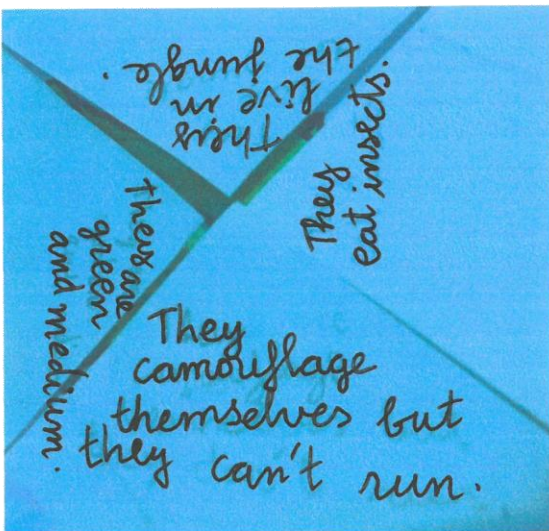 They
live in
the jungle.
They
eat insects.
They are
green
and medium.
They
camouflage
themselves but
they can't run.